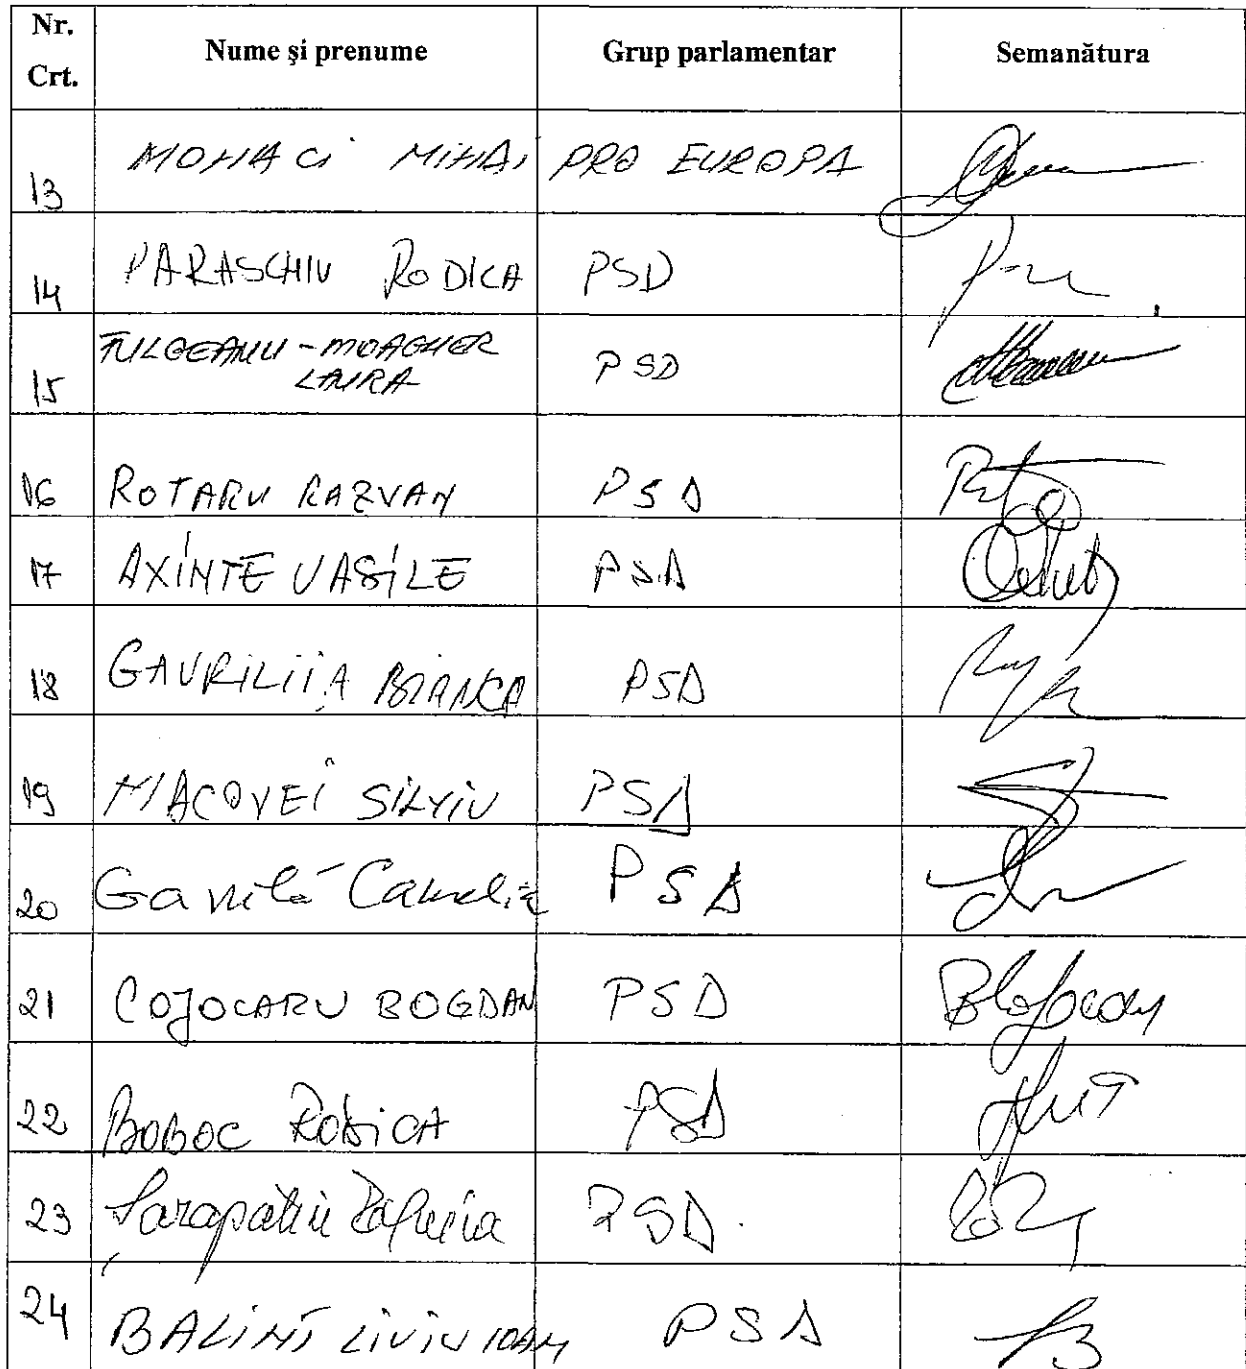 Nr. Crt. Nume și prenume Grup parlamentar Semanătura
13 MOHACI MIHAI PRO EUROPA
14 PARASCHIV RODICA PSD
15 FULGEANU-MOAGHER LAURA PSD
16 ROTARU RAZVAN PSD
17 AXINTE VASILE PSD
18 GAVRILIȚA BIANCA PSD
19 MACOVEI SILVIU PSD
20 Gavrilă Camelia PSD
21 COJOCARU BOGDAN PSD
22 BOBOC RODICA PSD
23 PSD.
24 BALINT LIVIU IOAN PSD